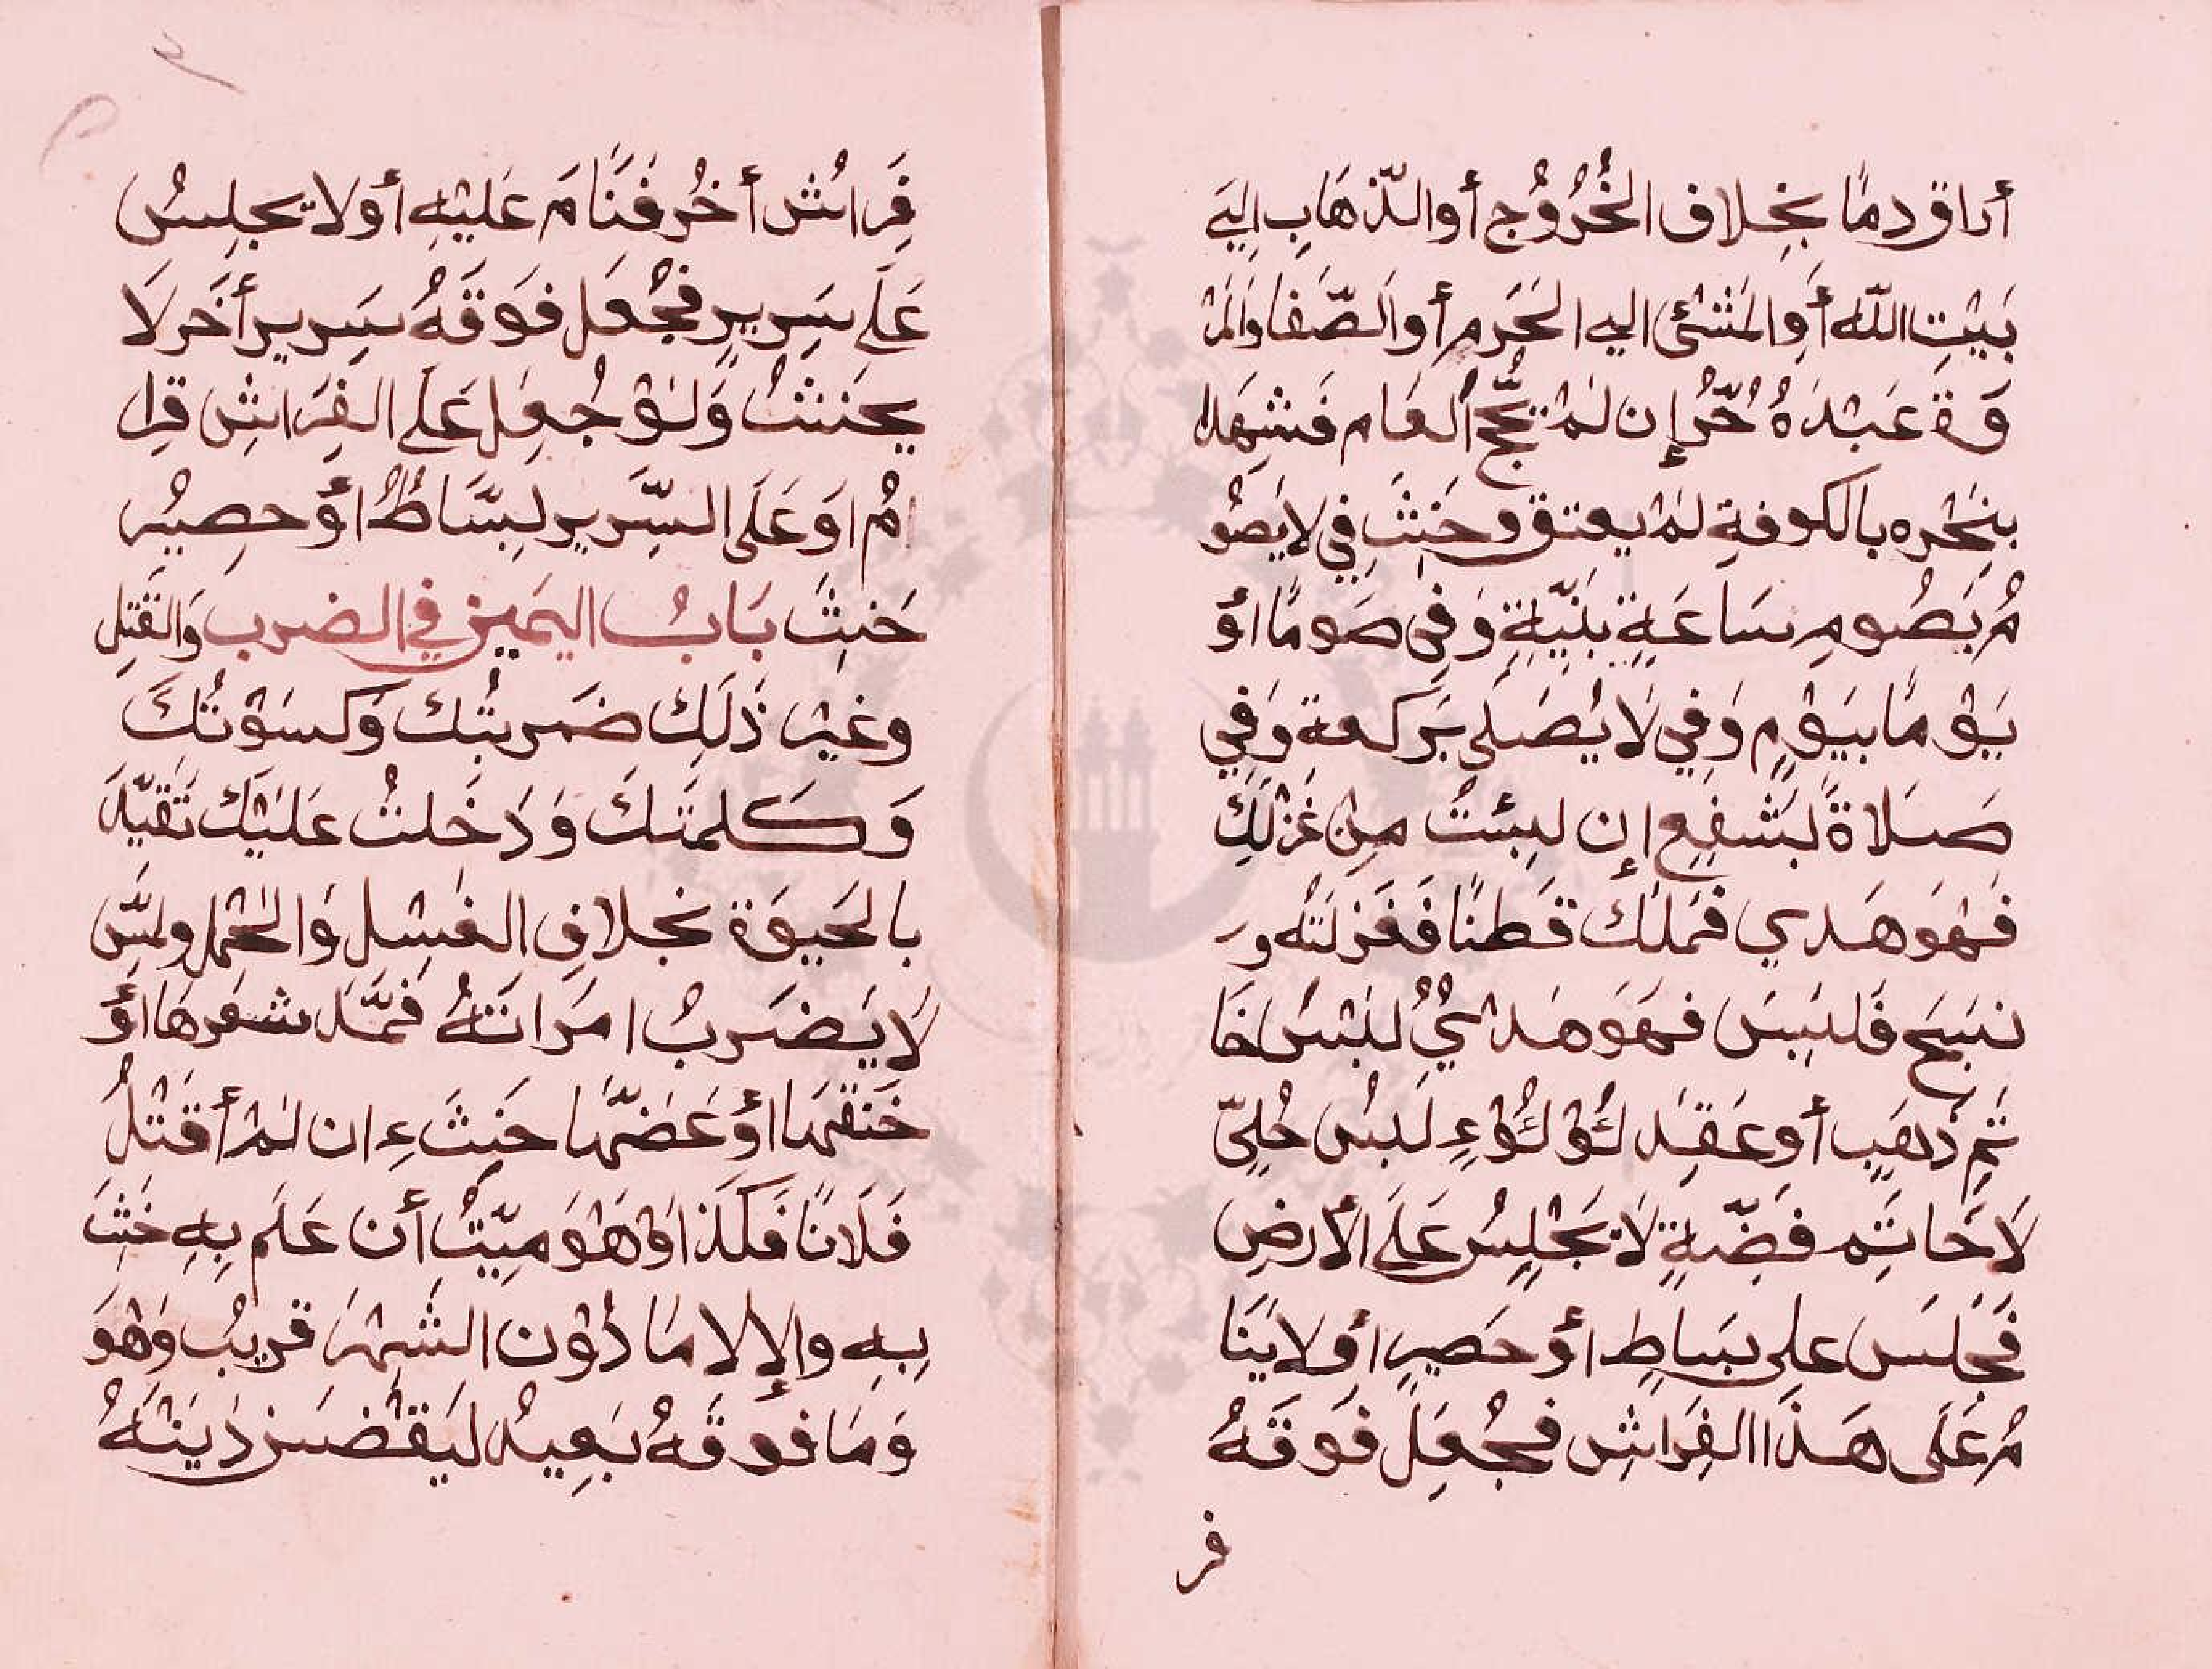 أراق دمًا بخِلاف الخُرُوُج أو الذّهَابِ إلىَ
بَيْتِ اللّه أَوِ المَشْئ اليه الحَرم أو الصَّفا وَالمَرْ
وَة عَبْدَهُ حُرّ إن لمْ يحُجّ العَام فَشهَدا
بنَحْره بالكوفةِ لمْ يعتق وحَنِثَ في لا يَصُو
مُ بَصُومِ سَاعَةٍ بنِيّةٍ وَفي صَومًا اوْ
يَوْمًا بيَوْمٍ وَفي لَا يُصَلى بَركعة وَفي
صَلاةً بَشفعٍ إن لبستُ مِنْ غَزْلَكِ
فهْوَ هَدي فمَلكَ قَطنًا فَغَزلَتْه وَ
نسَجَ فَلبسَ فهَوَ هَدْيٌ لبْسُ خَا
تَم ذَهَبٍ أو عَقد لُؤْلُؤءٍ لَبسُ حُليّ
لَا خَاتَمِ فضّةٍ لَا يجْلِسُ عَلَى الأرض
فَجَلسَ على بسَاطٍ أوْ حَصيرٍ أوْ لا يَنَا
مُ عَلَى هَذَا الفِرَاشِ فجُعِلَ فَوقَهُ
فر
فِرَاشٌ أخُر فَنَامَ عَليْهِ أو لا يجلِسُ
عَلَى سَرِيرٍ فجُعَل فَوقَهُ سَرير أخَر لَا
يحنثُ وَلوْ جُعِلَ عَلَى الفِرَاشِ قرا
امُ اوَ عَلَى السَّرير لبسَّاطٌ اوْ حصِيُر
حَنِثَ بَابُ اليَمين في الضرب وَالقتلِ
وغَيْر ذَلِكَ ضَربتُك وَكسَوْتُكَ
وَكلمتَكَ وَدَخَلتُ عَليْك تَقَيّدَ
بالحَيوَة بخلافِ الغسْل وَالحَمْل ولمَسَّ
لَا يَضَربُ امرَاتَهُ فمَّدَ شعَرهَا اوْ
خَنقهَا اوْ عَضّهَا حَنِثَ ءان لمْ أقتْلُ
فَلَانًا فَكَذا وْهْوَ مِيّتُ أن عَلَم بِهِ حَنِثَ
بِهِ وإلا لا مَا دُوْن الشَّهْر قريبُ وَهْوَ
وَمَا فوقَهُ بَعِيدُ ليَقضَين دَيَنْهُ